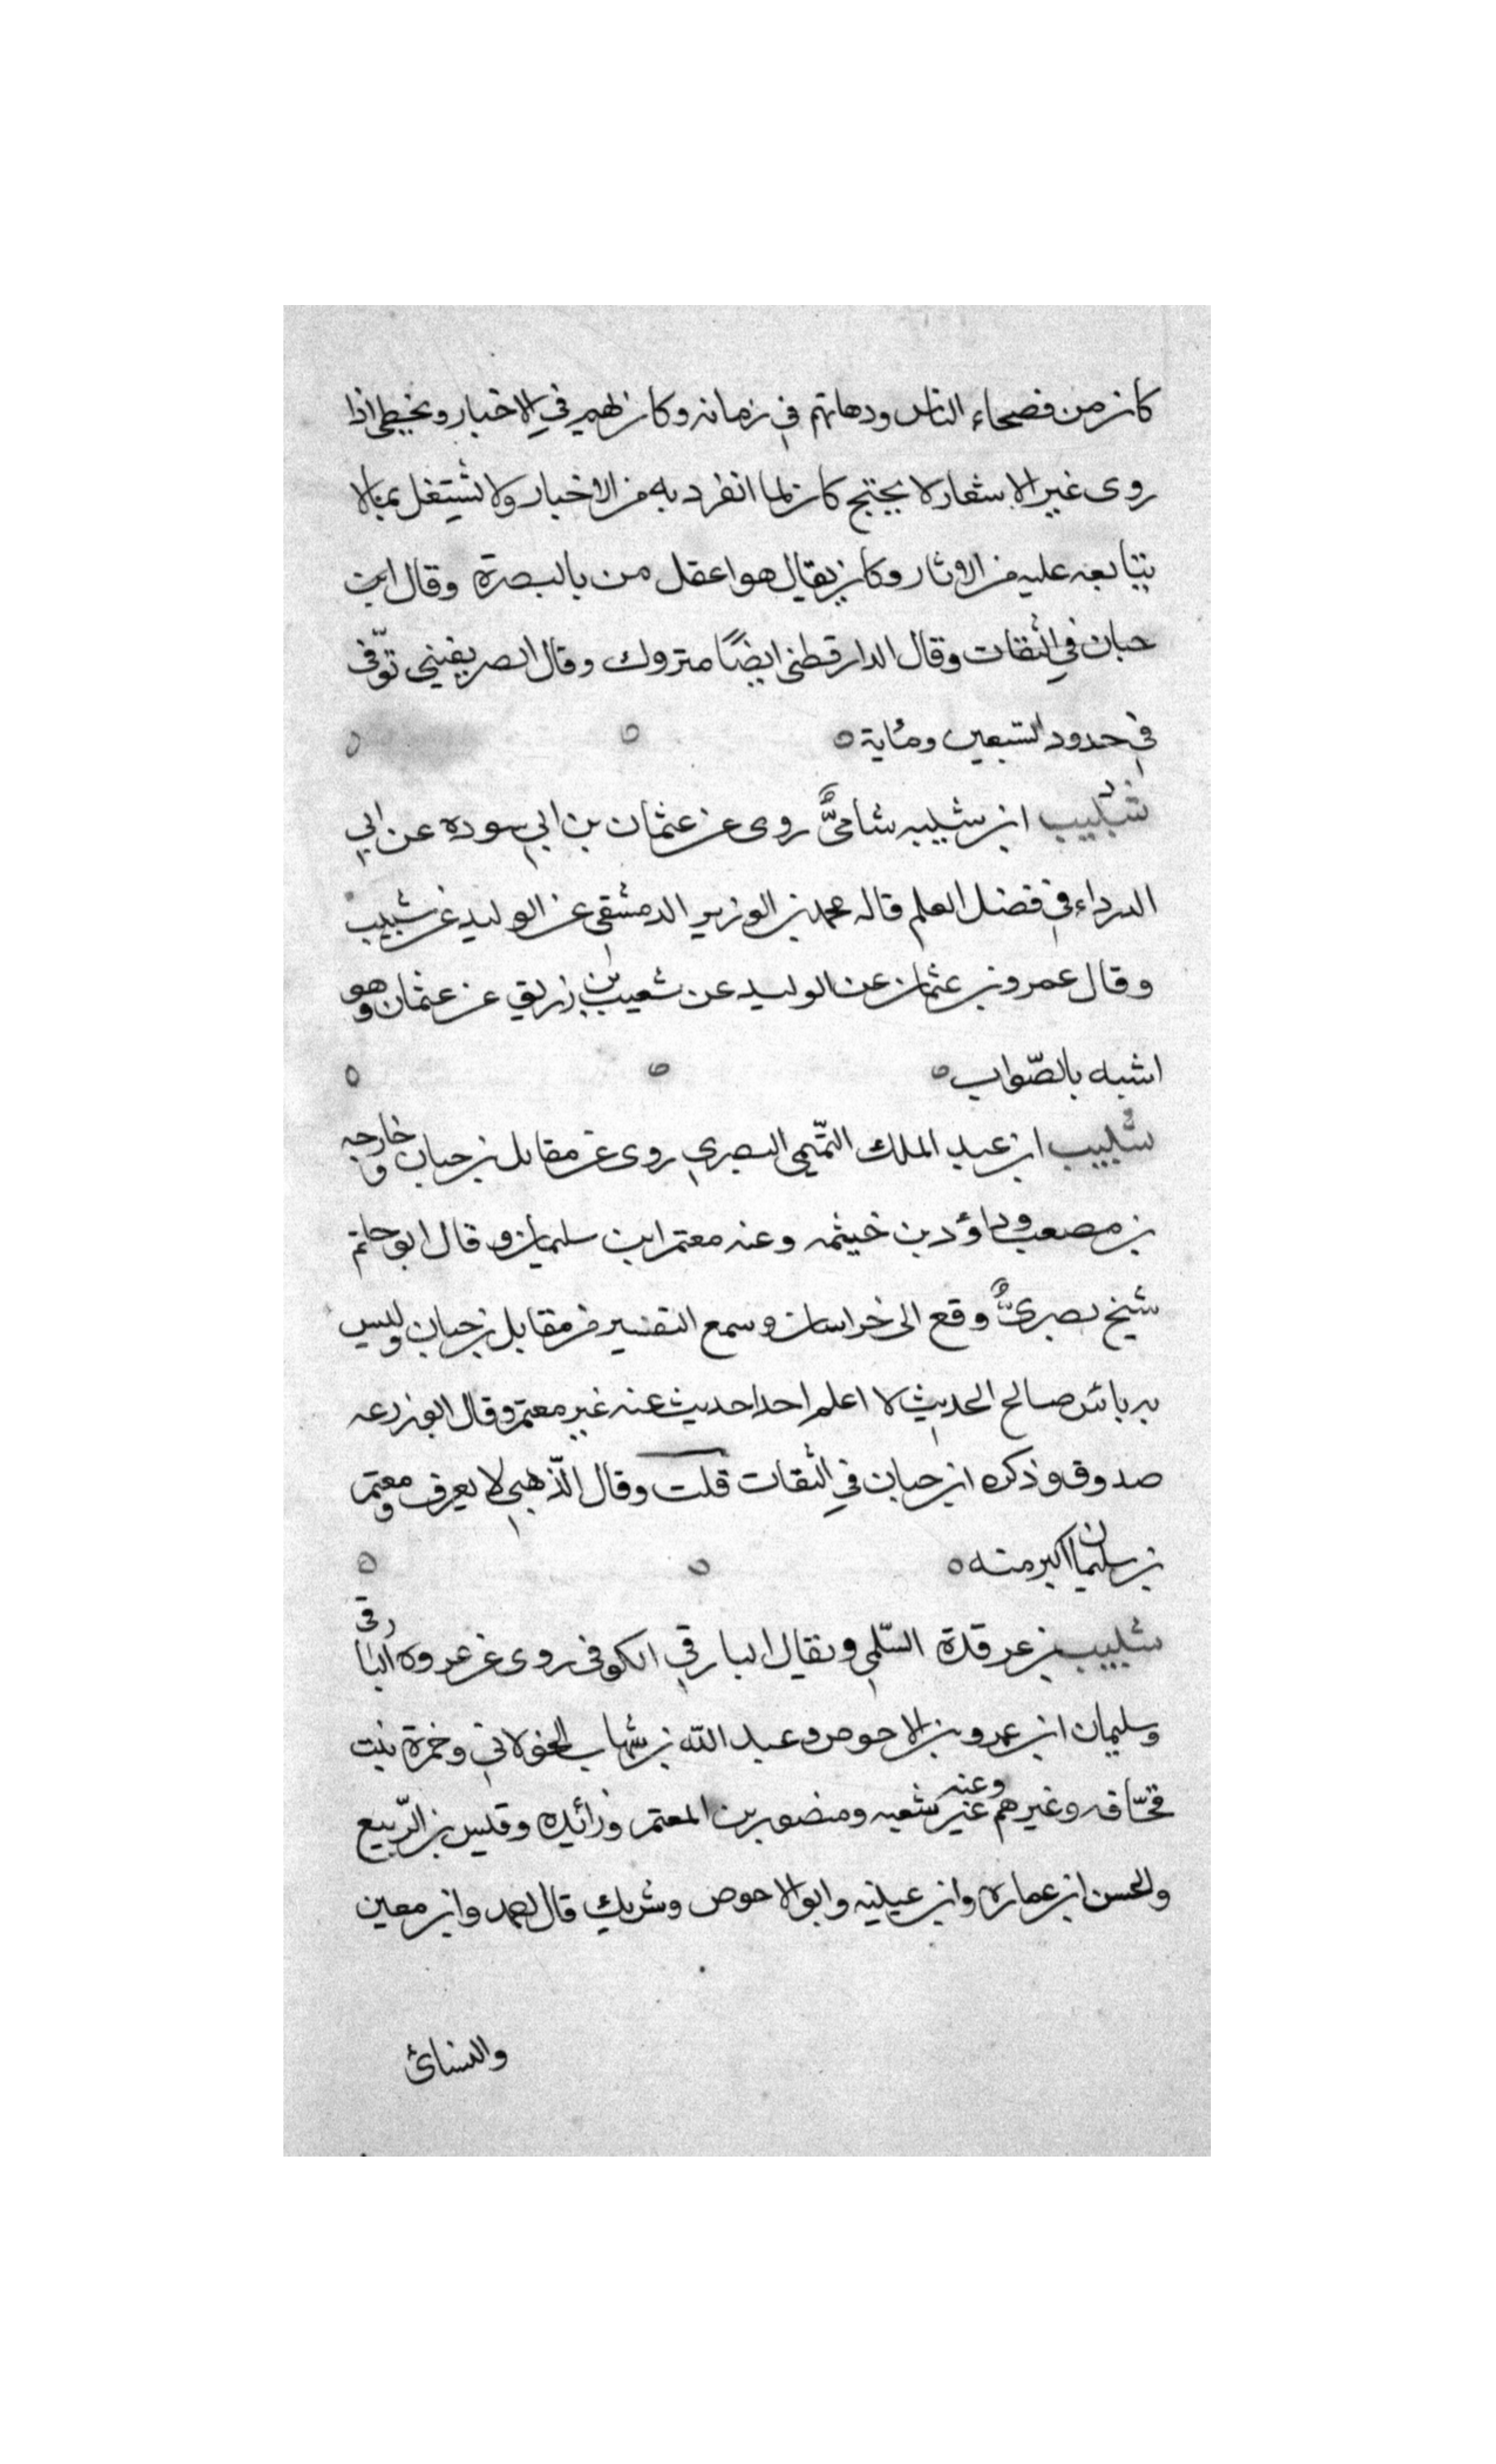 كان من فصحاء الناس ودهاتهم في زمانه وكان يهم في الاخبار ويخطى اذا
روى غير الاشعار لا يحتج كان لما انفرد به من الاخبار ولا نشتغل بما لا
يتابعه عليه من الاوثار وكان يقال هو اعقل من بالبصرة وقال ابن
حبان في الثقات وقال الدارقطني ايضًا متروك وقال الصريفيني توّفى
في حدود السبعين ومئاية
شبيب ابن شيبه شاميٌّ روى عن عثمان بن ابي سوده عن ابي
الدرداء في فضل العلم قاله محمد بن الوزير الدمشقي عن الوليد عن شبيب
وقال عمرو بن عثمان عن الوليد عن شعيب بن زريق عن عثمان وهو
اشبه بالصّواب
شبيب ابن عبد الملك التّميمي البصري روى عن مقاتل بن حبان وخارجه
بن مصعب وداؤد بن خيثمه وعنه معتمر ابن سليمان وقال ابو حاتم
شيخ بصريٌّ وقع الى خراسان وسمع التفسير من مقاتل بن حبان وليس
به بائس صالح الحديث لا اعلم احدا حديث عنه غير معتمر وقال ابو زرعه
صدوق وذكره ابن حبان في الثقات قلت وقال الذّهبي لا يعرف ومعتمر
بن سليمان اكبر منه
شبيب بن عرقدة السّلمي ويقال البارقي الكوفى روى عن عروه البارقى
وسليمان ابن عمرو بن الاحوص وعبد الله بن شهاب الخولاني وخمرة بنت
قحّافه وغيرهم وعنه شعبه ومنصور بن المعتمر وزائده وقيس بن الرّبيع
والحسن ابن عماره وابن عيينه وابو الاحوص وشريك قال احمد وابن معين
والنسائ